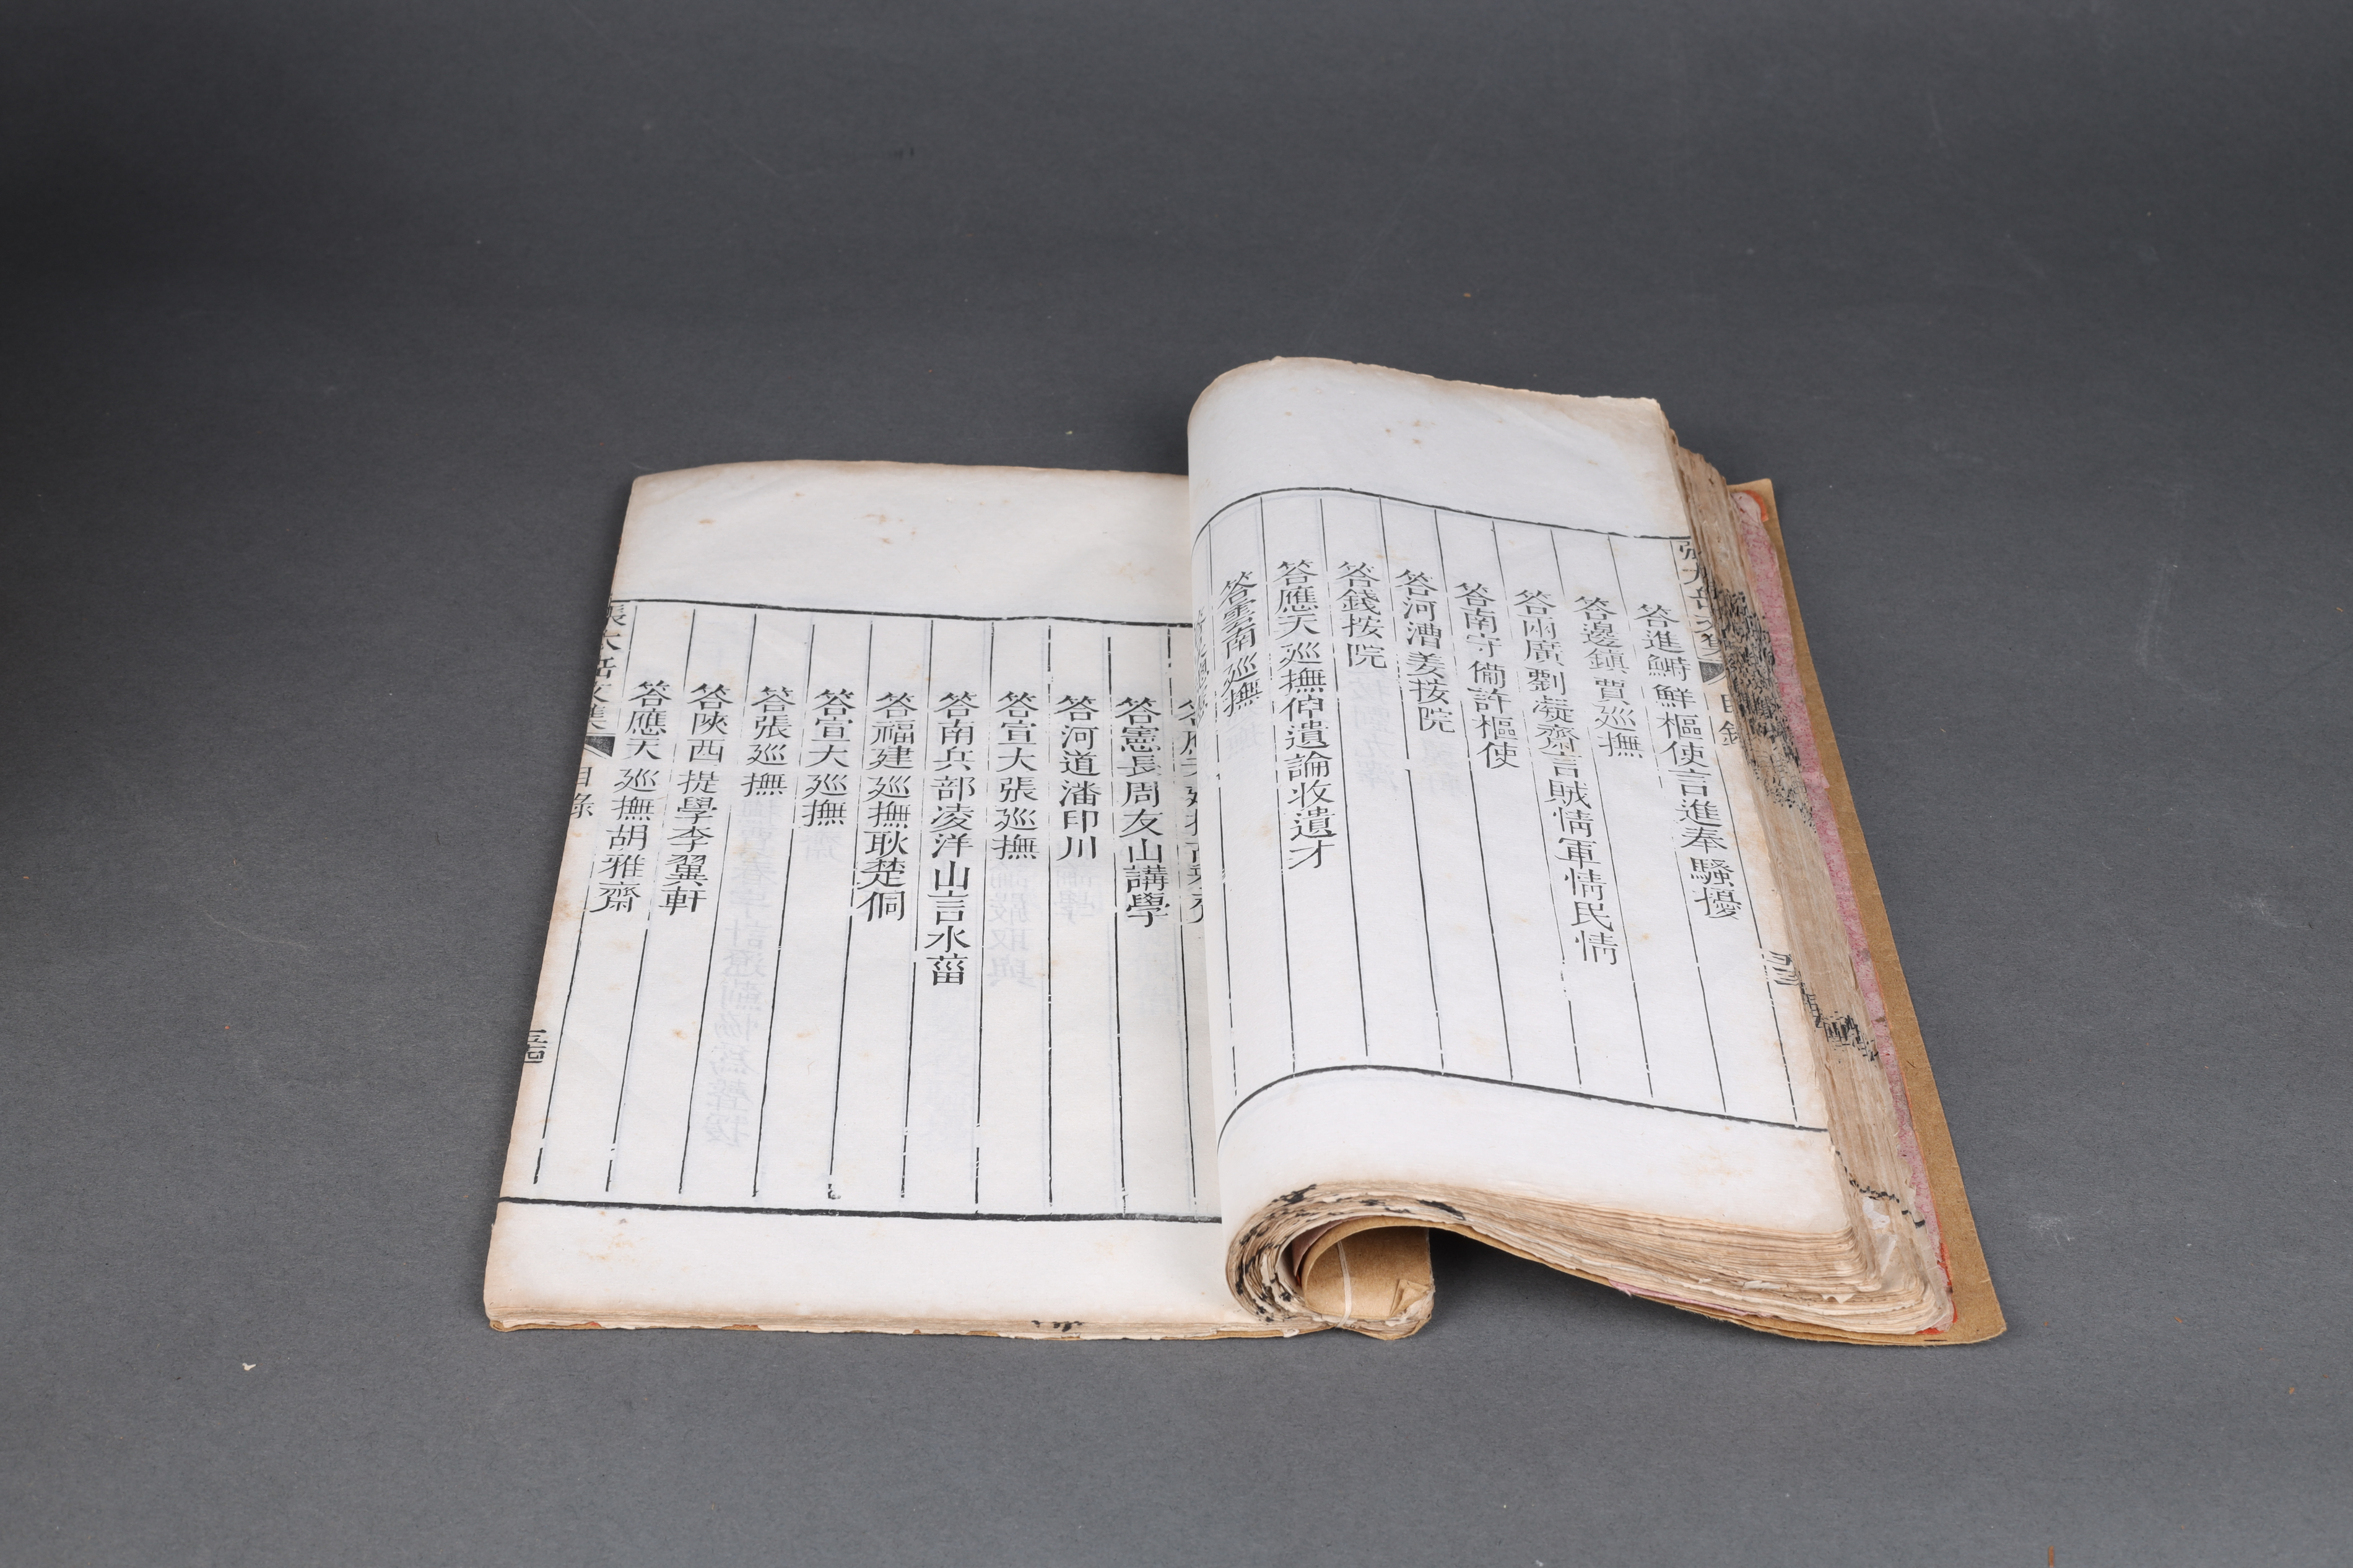 目錄
答進鰣鮮樞使言進奉騷擾
答邊鎮賈廵撫
答兩廣劉凝齋言賊情軍情民情
答南守備許樞使
答河漕姜按院
答錢按院
答應天廵撫倬遺論收遺才
答雲南廵撫
答憲長周友山講學
答河道潘印川
答宣大張廵撫
答南兵部凌洋山言水菑
答福建廵撫耿楚侗
答宣大廵撫
答張廵撫
答陝西提學李翼軒
答應天廵撫胡雅齋
張太岳文集
目錄